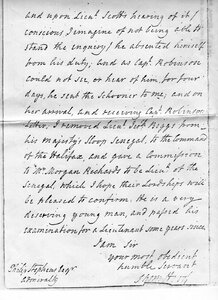 and upon Lieut Scott's hearing of it,
conscious, I imagine of not being able to
stand the enquiry, he absented himself
from his duty; and as Capt Robinson
could not see or hear of him for four
days, he sent the Schooner to me; and on
her arrival, and receiving Capt Robinson
letter, I removed Lieut Scot Beggs from
his Majesty's Sloop Senegal, to the command
of the Halifax, and gave a Commission
to Mr Morgan Richards to be Lieut of the
Senegal, which I hope their Lordships will
be pleased to confirm. He is a very
deserving young man, and passed his
examination for a Lieutenant some years since.
I am Sir
your most obedient
humble Servant
Philip Stephens Esqr
Admiralty